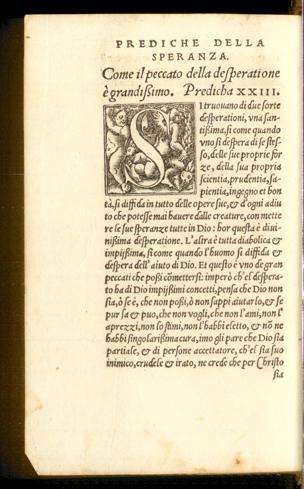 PREDICHE DELLA
SPERANZA.
Come il peccato della desperatione
è grandißimo. Predicha XXIII.
SI truouano di due sorte
desperationi, vna san-
tißima, si come quando
vno si despera di se stes-
so, delle sue proprie for
ze, della sua propria
scientia, prudentia, sa-
pientia, ingegno et bon
tà, si diffida in tutto delle opere sue, & d'ogni aiu
to che potesse mai hauere dalle creature, con mette
re le sue speranze tutte in Dio: hor questa è diui-
nißima desperatione. L'altra è tutta diabolica &
impijßima, si come quando l'huomo si diffida &
despera dell'aiuto di Dio. Et questo è vno de gran
peccati che poßi cõmettersi: imperò ch'el despera-
to ha di Dio impijßimi concetti, pensa che Dio non
sia, ò se è, che non poßi, ò non sappi aiutarlo, & se
pur sa & puo, che non vogli, che non l'ami, non l'
aprezzi, non lo stimi, non l'habbi eletto, & nõ ne
habbi singolarißima cura, imo gli pare che Dio sia
partiale, & di persone accettatore, ch'el sia suo
inimico, crudele & irato, ne crede che per Christo
sia